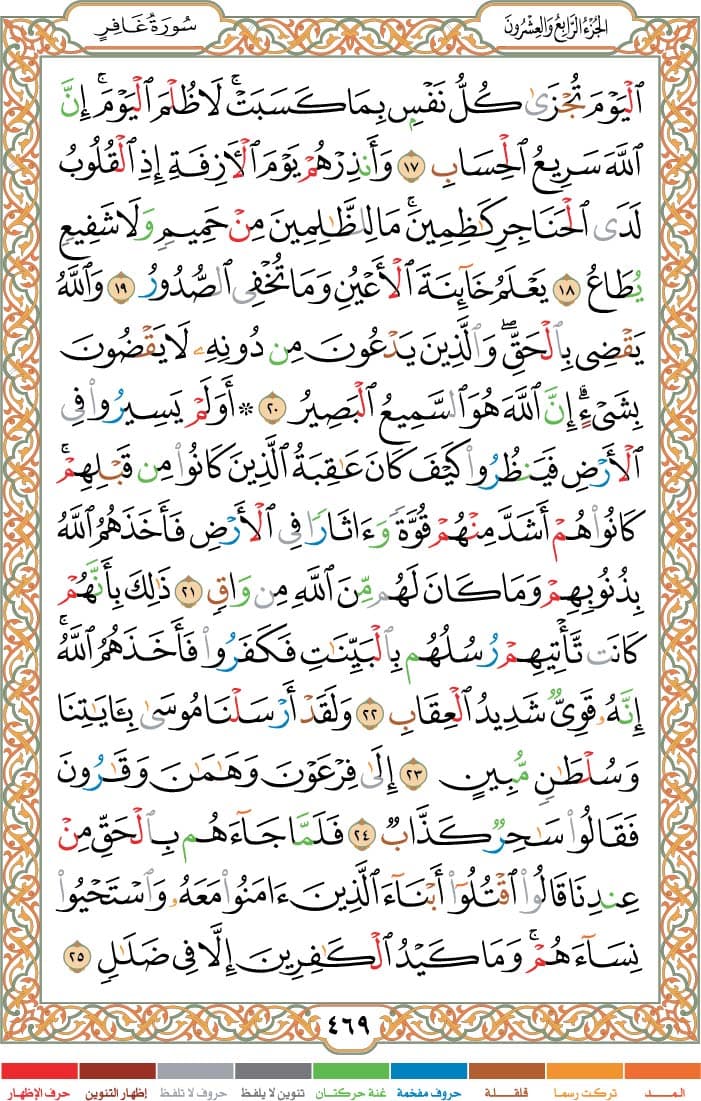 سُورَةُ غَافِرٍ
الجُزْءُ الرَّابِعُ وَالعِشْرُونَ
ٱلْيَوْمَ تُجْزَىٰ كُلُّ نَفْسٍۭ بِمَا كَسَبَتْ ۚ لَا ظُلْمَ ٱلْيَوْمَ ۚ إِنَّ
ٱللَّهَ سَرِيعُ ٱلْحِسَابِ ١٧ وَأَنذِرْهُمْ يَوْمَ ٱلْـَٔازِفَةِ إِذِ ٱلْقُلُوبُ
لَدَى ٱلْحَنَاجِرِ كَـٰظِمِينَ ۚ مَا لِلظَّـٰلِمِينَ مِنْ حَمِيمٍ وَلَا شَفِيعٍ
يُطَاعُ ١٨ يَعْلَمُ خَآئِنَةَ ٱلْأَعْيُنِ وَمَا تُخْفِى ٱلصُّدُورُ ١٩ وَٱللَّهُ
يَقْضِى بِٱلْحَقِّ ۖ وَٱلَّذِينَ يَدْعُونَ مِن دُونِهِۦ لَا يَقْضُونَ
بِشَىْءٍ ۗ إِنَّ ٱللَّهَ هُوَ ٱلسَّمِيعُ ٱلْبَصِيرُ ٢٠ ۞ أَوَلَمْ يَسِيرُوا۟ فِى
ٱلْأَرْضِ فَيَنظُرُوا۟ كَيْفَ كَانَ عَـٰقِبَةُ ٱلَّذِينَ كَانُوا۟ مِن قَبْلِهِمْ ۚ
كَانُوا۟ هُمْ أَشَدَّ مِنْهُمْ قُوَّةً وَءَاثَارًا فِى ٱلْأَرْضِ فَأَخَذَهُمُ ٱللَّهُ
بِذُنُوبِهِمْ وَمَا كَانَ لَهُم مِّنَ ٱللَّهِ مِن وَاقٍ ٢١ ذَٰلِكَ بِأَنَّهُمْ
كَانَت تَّأْتِيهِمْ رُسُلُهُم بِٱلْبَيِّنَـٰتِ فَكَفَرُوا۟ فَأَخَذَهُمُ ٱللَّهُ ۚ
إِنَّهُۥ قَوِىٌّ شَدِيدُ ٱلْعِقَابِ ٢٢ وَلَقَدْ أَرْسَلْنَا مُوسَىٰ بِـَٔايَـٰتِنَا
وَسُلْطَـٰنٍ مُّبِينٍ ٢٣ إِلَىٰ فِرْعَوْنَ وَهَـٰمَـٰنَ وَقَـٰرُونَ
فَقَالُوا۟ سَـٰحِرٌ كَذَّابٌ ٢٤ فَلَمَّا جَآءَهُم بِٱلْحَقِّ مِنْ
عِندِنَا قَالُوا۟ ٱقْتُلُوٓا۟ أَبْنَآءَ ٱلَّذِينَ ءَامَنُوا۟ مَعَهُۥ وَٱسْتَحْيُوا۟
نِسَآءَهُمْ ۚ وَمَا كَيْدُ ٱلْكَـٰفِرِينَ إِلَّا فِى ضَلَـٰلٍ ٢٥
٤٦٩
المـــد تركت رسما قلقـلة حروف مفخمة غنة حركتان تنوين لا يلفظ حروف لا تلفظ إظهار التنوين حرف الإظهار